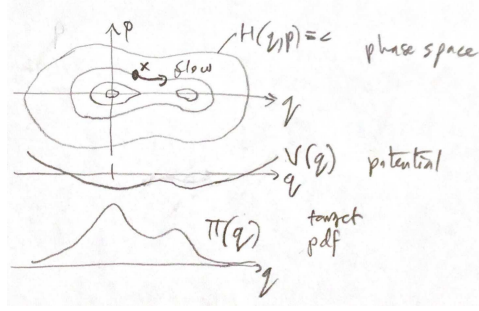 p
H(q,p)=c
phase space
x
flow
q
V(q)
potential
q
π(q)
target
pdf
q